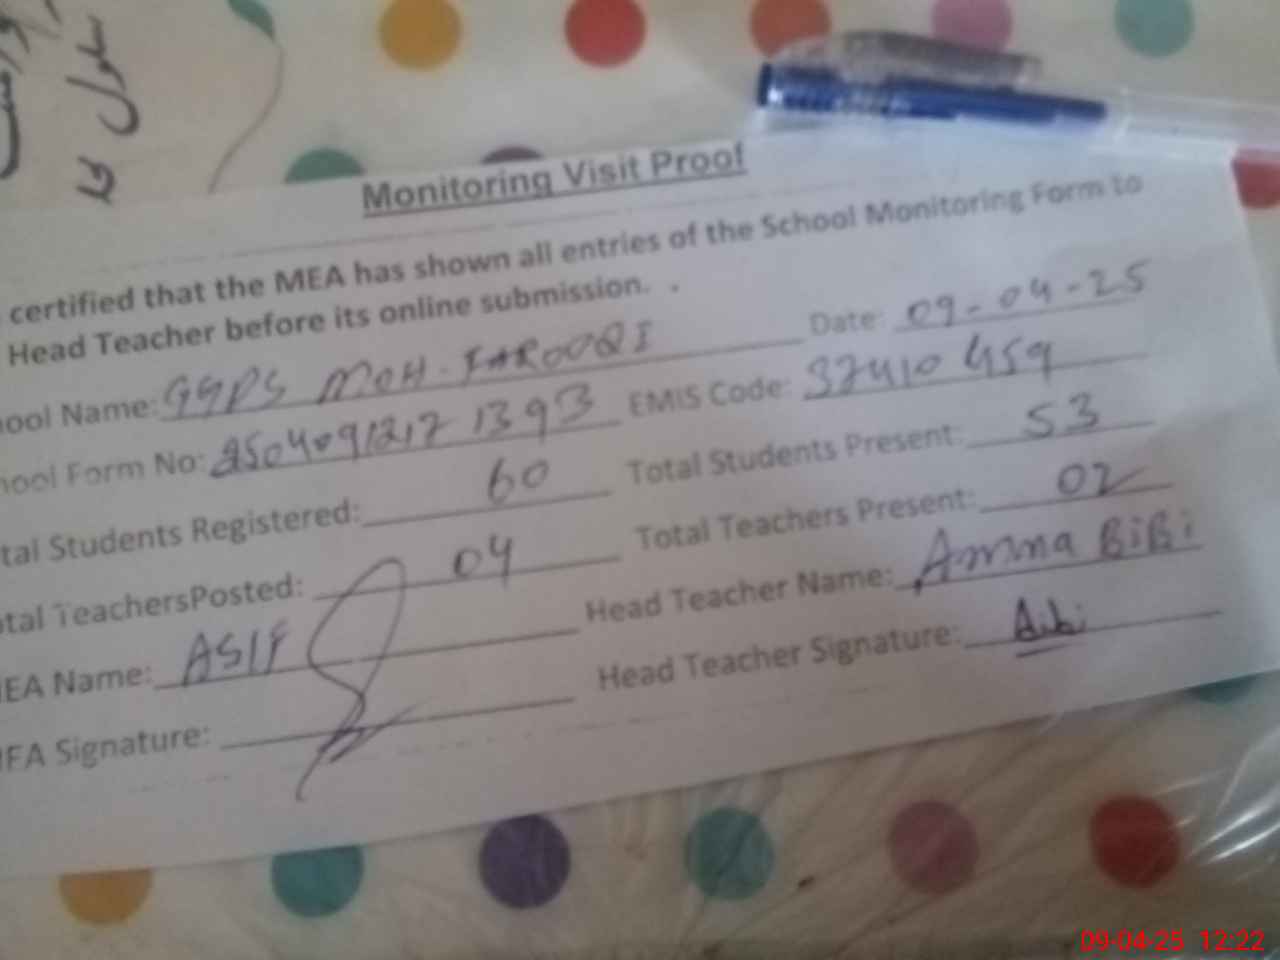 Monitoring Visit Proof
certified that the MEA has shown all entries of the School Monitoring Form to
Head Teacher before its online submission. .
hool Name: GGPS MOH. FAROOQI Date: 09-04-25
hool Form No: 2504091217 1393 EMIS Code: 37410459
tal Students Registered: 60 Total Students Present: 53
otal TeachersPosted: 04 Total Teachers Present: 02
MEA Name: ASIF Head Teacher Name: Amna BiBi
MEA Signature: Head Teacher Signature:
09-04-25 12:22